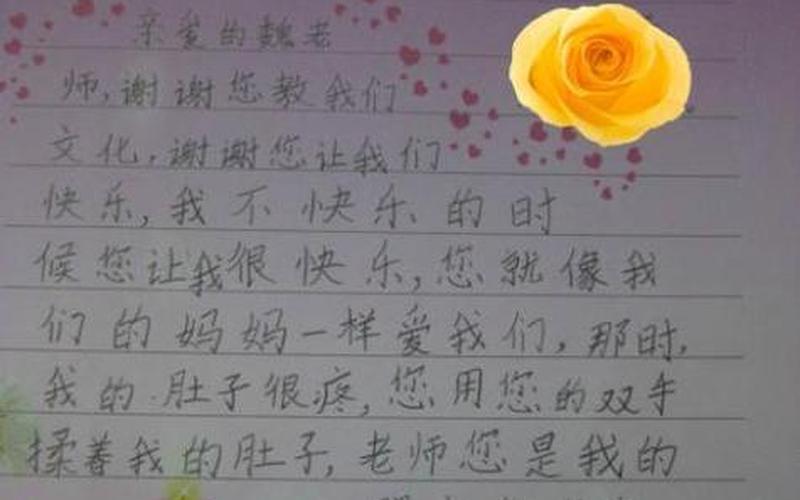 亲爱的魏老
师，谢谢您教我们
文化，谢谢您让我们
快乐，我不快乐的时
候您让我很快乐，您就像我
们的妈妈一样爱我们，那时，
我的肚子很疼，您用您的双手
揉着我的肚子，老师您是我的